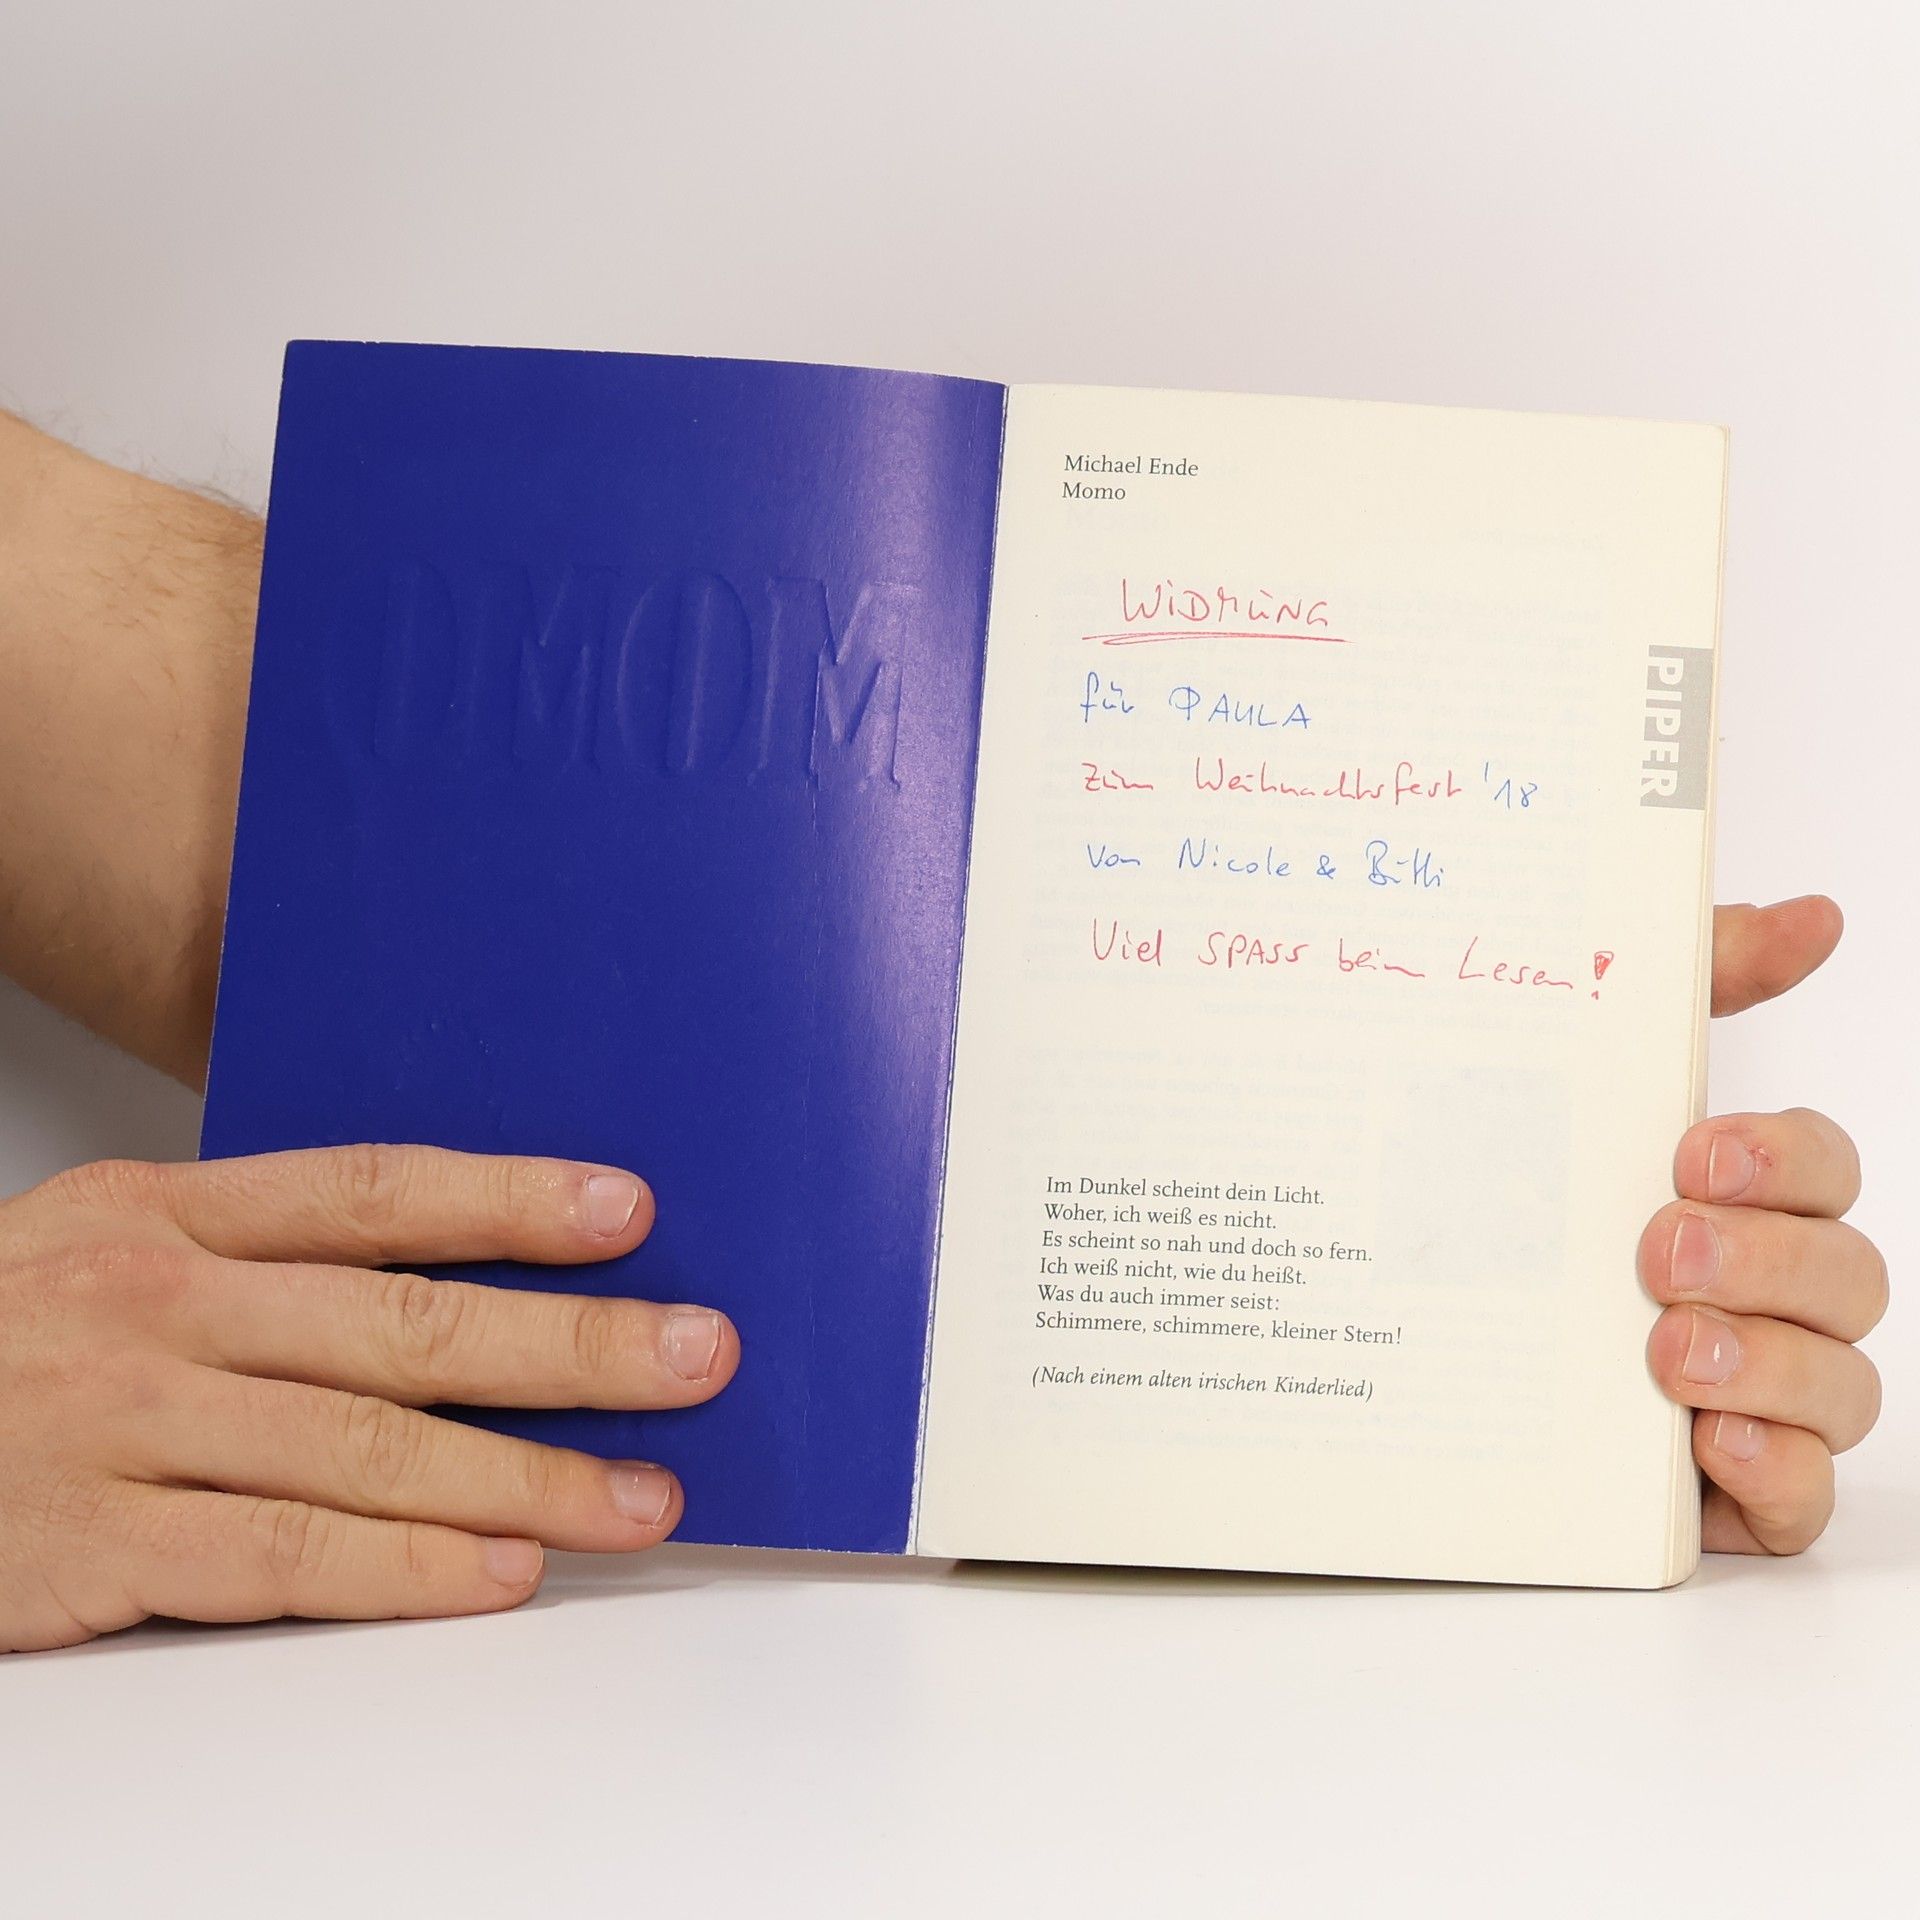 MOMO
Michael Ende
Momo
WIDMUNG
für PAULA
zum Weihnachtsfest '18
von Nicole &
Viel SPASS beim Lesen!
PIPER
Im Dunkel scheint dein Licht.
Woher, ich weiß es nicht.
Es scheint so nah und doch so fern.
Ich weiß nicht, wie du heißt.
Was du auch immer seist:
Schimmere, schimmere, kleiner Stern!
(Nach einem alten irischen Kinderlied)